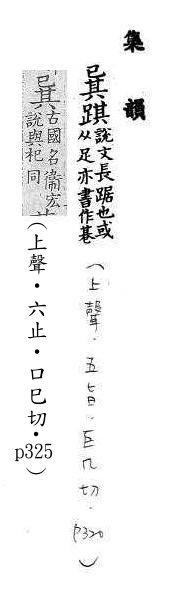 集韻
㠱踑說文長踞也或
从足亦書作
（上聲．五旨．巨几切．p320）
㠱古國名衞宏
說與杞同
（上聲．六止．口巳切．p325）